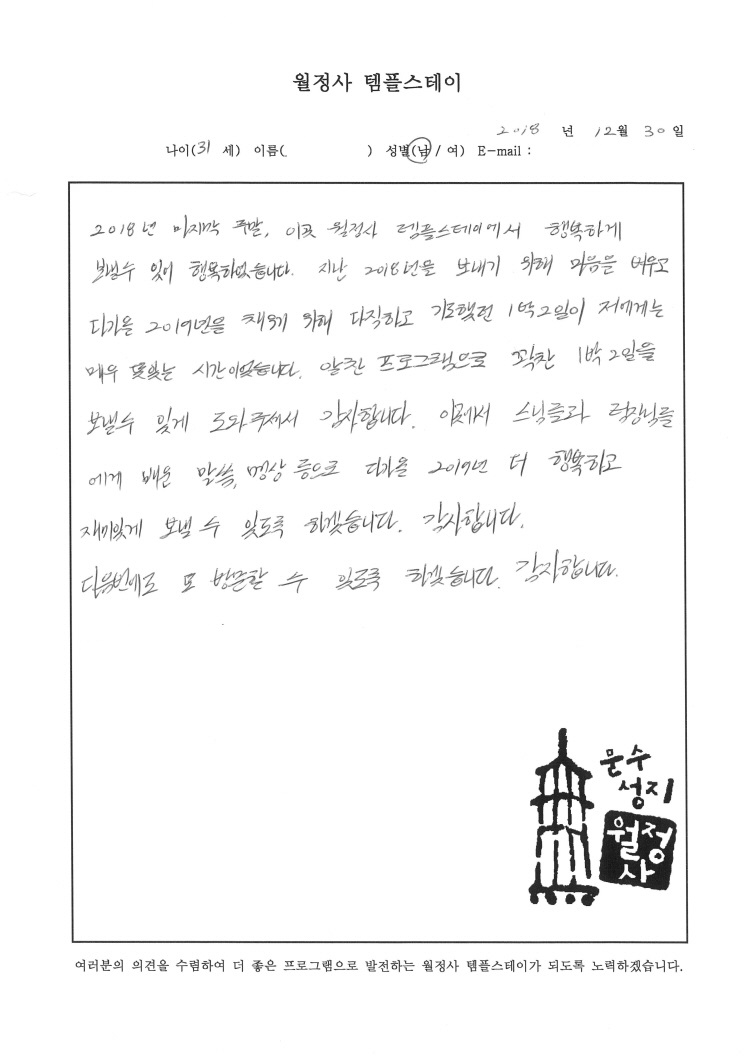 월정사 템플스테이
2018 년 12월 30일
나이(31 세) 이름( ) 성별(남 / 여) E-mail :
2018년 마지막 주말, 이곳 월정사 템플스테이에서 행복하게
보낼수 있어 행복하였습니다. 지난 2018년을 보내기 위해 마음을 비우고
다가올 2019년을 채우기 위해 다짐하고 기도했던 1박2일이 저에게는
매우 뜻있는 시간이었습니다. 알찬 프로그램으로 꽉찬 1박2일을
보낼수 있게 도와주셔서 감사합니다. 이곳에서 스님들과 팀장님들
에게 배운 말씀, 명상 등으로 다가올 2019년 더 행복하고
재미있게 보낼 수 있도록 하겠습니다. 감사합니다.
다음번에도 또 방문할 수 있도록 하겠습니다. 감사합니다.
문수
성지
월정
사
여러분의 의견을 수렴하여 더 좋은 프로그램으로 발전하는 월정사 템플스테이가 되도록 노력하겠습니다.